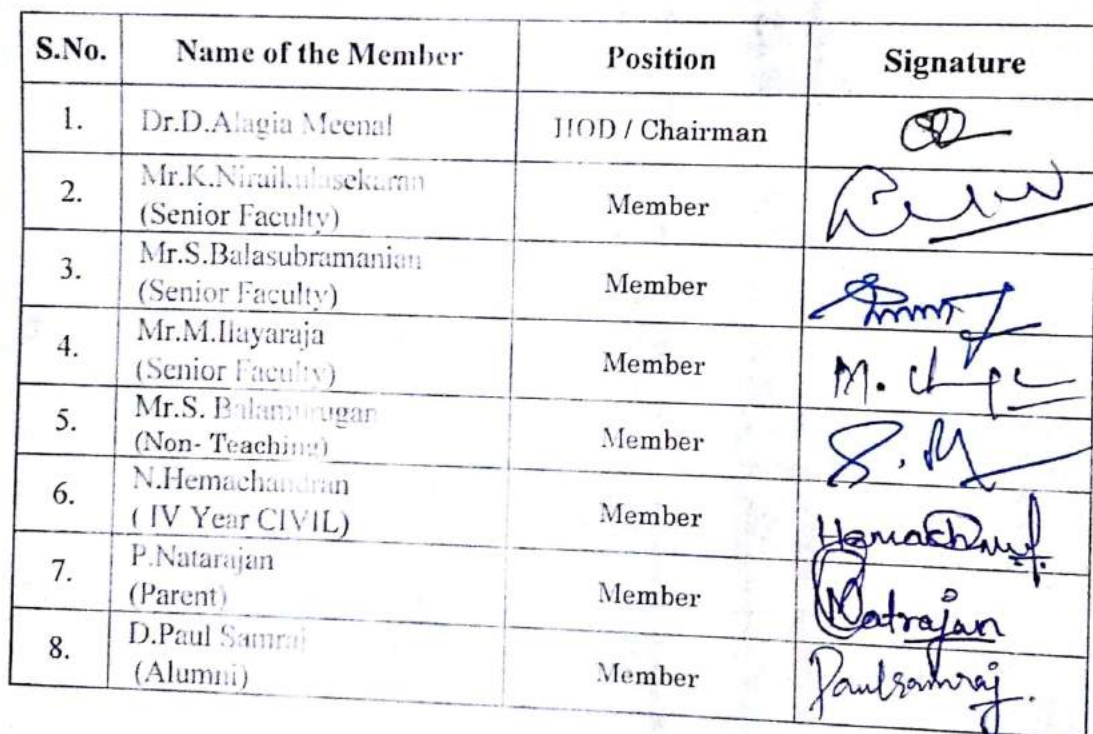 S.No. Name of the Member Position Signature
1. Dr.D.Alagia Meenal HOD / Chairman
2. Mr.K.Niraikulasekaran
(Senior Faculty) Member
3. Mr.S.Balasubramanian
(Senior Faculty) Member
4. Mr.M.Ilayaraja
(Senior Faculty) Member M.
5. Mr.S. Balamurugan
(Non- Teaching) Member S.
6. N.Hemachandran
( IV Year CIVIL) Member
7. P.Natarajan
(Parent) Member Natrajan
8. D.Paul Samraj
(Alumni) Member Paulsamraj.